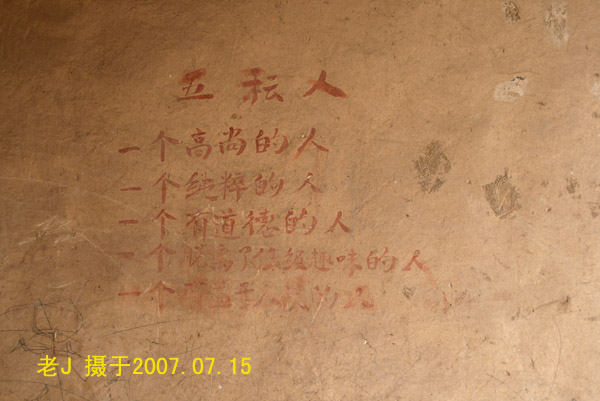 五耘人
一个高尚的人
一个纯粹的人
一个有道德的人
一个脱离了低级趣味的人
一个有益于人民的人
老J 摄于2007.07.15